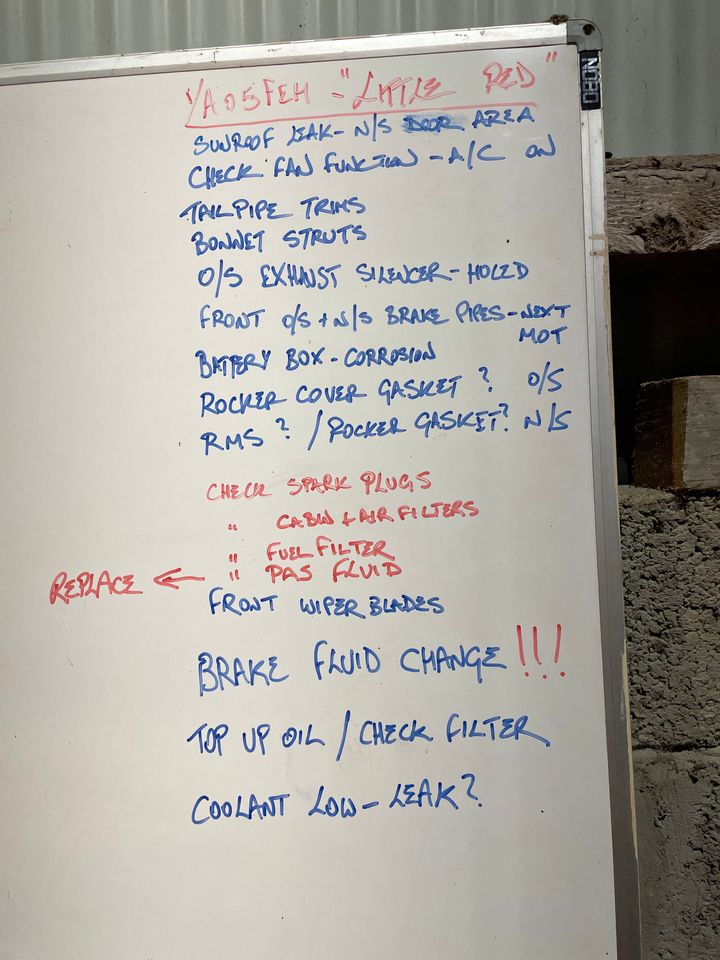 YA05FEH - "LITTLE RED"
NOBO
SUNROOF LEAK - N/S DOOR AREA
CHECK FAN FUNCTION - A/C ON
TAILPIPE TRIMS
BONNET STRUTS
O/S EXHAUST SILENCER - HOLED
FRONT O/S + N/S BRAKE PIPES - NEXT
MOT
BATTERY BOX - CORROSION
ROCKER COVER GASKET ? O/S
RMS ? / ROCKER GASKET? N/S
CHECK SPARK PLUGS
" CABIN + AIR FILTERS
" FUEL FILTER
REPLACE ← " PAS FLUID
FRONT WIPER BLADES
BRAKE FLUID CHANGE !!!
TOP UP OIL / CHECK FILTER
COOLANT LOW - LEAK?